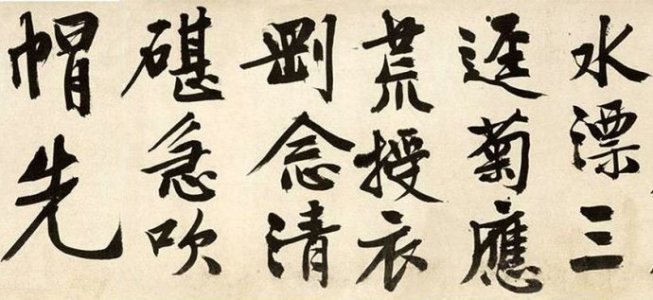 水漂三
逕菊應
荒授衣
剛念清
碪急吹
帽先